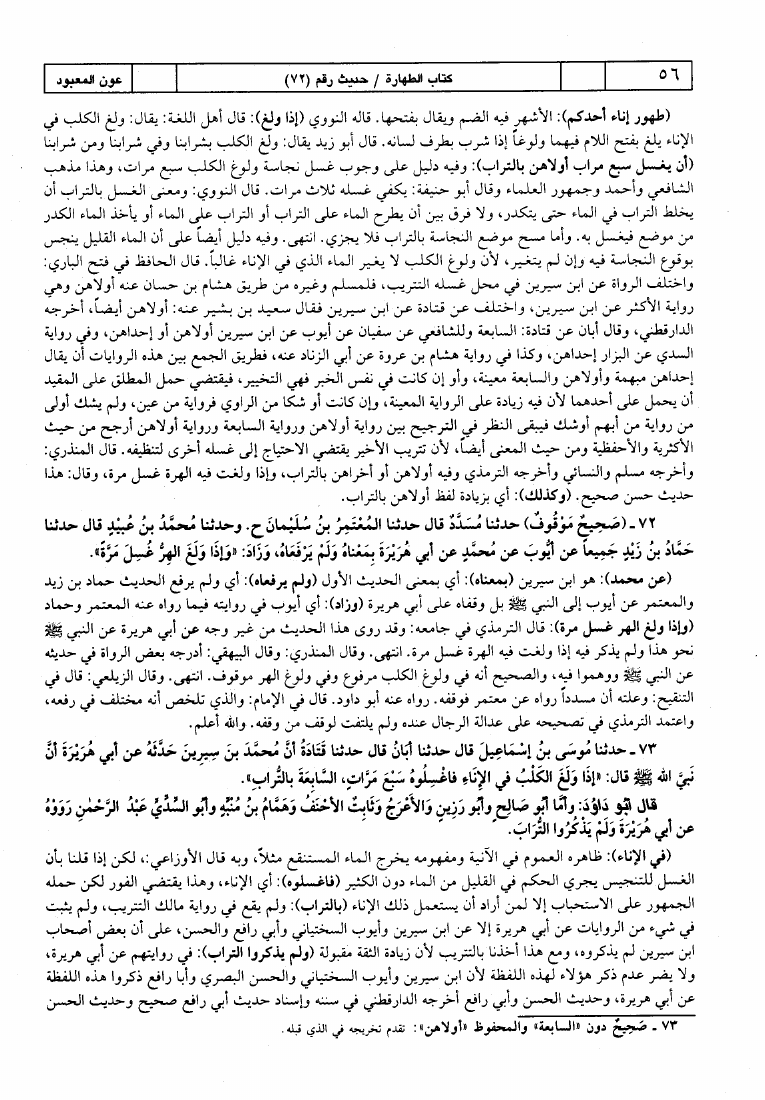 ٥٦
كتاب الطهارة / حديث رقم (٧٢)
عون المعبود
(طهور إناء أحدكم): الأشهر فيه الضم ويقال بفتحها. قاله النووي (إذا ولغ): قال أهل اللغة: يقال: ولغ الكلب في
الإناء يلغ بفتح اللام فيهما ولوغاً إذا شرب بطرف لسانه. قال أبو زيد يقال: ولغ الكلب بشرابنا وفي شرابنا ومن شرابنا
(أن يغسل سبع مراب أولاهن بالتراب): وفيه دليل على وجوب غسل نجاسة ولوغ الكلب سبع مرات، وهذا مذهب
الشافعي وأحمد وجمهور العلماء وقال أبو حنيفة: يكفي غسله ثلاث مرات. قال النووي: ومعنى الغسل بالتراب أن
يخلط التراب في الماء حتى يتكدر، ولا فرق بين أن يطرح الماء على التراب أو التراب على الماء أو يأخذ الماء الكدر
من موضع فيغسل به. وأما مسح موضع النجاسة بالتراب فلا يجزي. انتهى. وفيه دليل أيضاً على أن الماء القليل ينجس
بوقوع النجاسة فيه وإن لم يتغير، لأن ولوغ الكلب لا يغير الماء الذي في الإناء غالباً. قال الحافظ في فتح الباري:
واختلف الرواة عن ابن سيرين في محل غسله التتريب، فلمسلم وغيره من طريق هشام بن حسان عنه أولاهن وهي
رواية الأكثر عن ابن سيرين، واختلف عن قتادة عن ابن سيرين فقال سعيد بن بشير عنه: أولاهن أيضاً، أخرجه
الدارقطني، وقال أبان عن قتادة: السابعة وللشافعي عن سفيان عن أيوب عن ابن سيرين أولاهن أو إحداهن، وفي رواية
السدي عن البزار إحداهن، وكذا في رواية هشام بن عروة عن أبي الزناد عنه، فطريق الجمع بين هذه الروايات أن يقال
إحداهن مبهمة وأولاهن والسابعة معينة، وأو إن كانت في نفس الخبر فهي التخيير، فيقتضي حمل المطلق على المقيد
أن يحمل على أحدهما لأن فيه زيادة على الرواية المعينة، وإن كانت أو شكا من الراوي فرواية من عين، ولم يشك أولى
من رواية من أبهم أوشك فيبقى النظر في الترجيح بين رواية أولاهن ورواية السابعة ورواية أولاهن أرجح من حيث
الأكثرية والأحفظية ومن حيث المعنى أيضاً، لأن تتريب الأخير يقتضي الاحتياج إلى غسله أخرى لتنظيفه. قال المنذري:
وأخرجه مسلم والنسائي وأخرجه الترمذي وفيه أولاهن أو أخراهن بالتراب، وإذا ولغت فيه الهرة غسل مرة، وقال: هذا
حديث حسن صحيح. (وكذلك): أي بزيادة لفظ أولاهن بالتراب.
٧٢ ـ (صَحِيحٌ مَوْقُوفٌ) حدثنا مُسَدَّدٌ قال حدثنا المُعْتَمِرُ بنُ سُلَيْمانَ ح. وحدثنا مُحمَّدُ بنُ عُبيْدٍ قال حدثنا
حَمَّادُ بنُ زَيْدٍ جَميعاً عن أيُّوبَ عن مُحمَّدٍ عن أبي هُرَيْرَةَ بِمَعْناهُ وَلَمْ يَرْفَعَاهُ، وَزَادَ: «وَإِذَا وَلَغَ الهِرُّ غُسِلَ مَرَّةً».
(عن محمد): هو ابن سيرين (بمعناه): أي بمعنى الحديث الأول (ولم يرفعاه): أي ولم يرفع الحديث حماد بن زيد
والمعتمر عن أيوب إلى النبي ﷺ بل وقفاه على أبي هريرة (وزاد): أي أيوب في روايته فيما رواه عنه المعتمر وحماد
(وإذا ولغ الهر غسل مرة): قال الترمذي في جامعه: وقد روى هذا الحديث من غير وجه عن أبي هريرة عن النبي ﷺ
نحو هذا ولم يذكر فيه إذا ولغت فيه الهرة غسل مرة. انتهى. وقال المنذري: وقال البيهقي: أدرجه بعض الرواة في حديثه
عن النبي ﷺ ووهموا فيه، والصحيح أنه في ولوغ الكلب مرفوع وفي ولوغ الهر موقوف. انتهى. وقال الزيلعي: قال في
التنقيح: وعلته أن مسدداً رواه عن معتمر فوقفه. رواه عنه أبو داود. قال في الإمام: والذي تلخص أنه مختلف في رفعه،
واعتمد الترمذي في تصحيحه على عدالة الرجال عنده ولم يلتفت لوقف من وقفه. والله أعلم.
٧٣ ـ حدثنا مُوسَى بنُ إسْمَاعِيلَ قال حدثنا أبَانُ قال حدثنا قَتَادَةُ أنَّ مُحمَّدَ بنَ سِيرِينَ حَدَّثَهُ عن أبي هُرَيْرَةَ أنَّ
نَبيَّ الله ﷺ قال: «إذَا وَلَغَ الكَلْبُ في الإنَاءِ فاغْسِلُوهُ سَبْعَ مَرَّاتٍ، السَّابِعَةَ بالتُّرابِ».
قال أبُو دَاوُدَ: وأمَّا أبُو صَالحٍ وأبُو رَزِينٍ وَالأعْرَجُ وَثَابِتٌ الأحْنَفُ وَهَمَّامُ بنُ مُنَبِّهٍ وأبُو السُّدِّيِّ عَبْدُ الرَّحْمٰنِ رَوَوْهُ
عن أبي هُرَيْرَةَ وَلَمْ يَذْكُرُوا التُّرَابَ.
(في الإناء): ظاهره العموم في الآنية ومفهومه يخرج الماء المستنقع مثلاً، وبه قال الأوزاعي:، لكن إذا قلنا بأن
الغسل للتنجيس يجري الحكم في القليل من الماء دون الكثير (فاغسلوه): أي الإناء، وهذا يقتضي الفور لكن حمله
الجمهور على الاستحباب إلا لمن أراد أن يستعمل ذلك الإناء (بالتراب): ولم يقع في رواية مالك التتريب، ولم يثبت
في شيء من الروايات عن أبي هريرة إلا عن ابن سيرين وأيوب السختياني وأبي رافع والحسن، على أن بعض أصحاب
ابن سيرين لم يذكروه، ومع هذا أخذنا بالتتريب لأن زيادة الثقة مقبولة (ولم يذكروا التراب): في روايتهم عن أبي هريرة،
ولا يضر عدم ذكر هؤلاء لهذه اللفظة لأن ابن سيرين وأيوب السختياني والحسن البصري وأبا رافع ذكروا هذه اللفظة
عن أبي هريرة، وحديث الحسن وأبي رافع أخرجه الدارقطني في سننه وإسناد حديث أبي رافع صحيح وحديث الحسن
٧٣ ـ صَحِيحٌ دون «السابعة» والمحفوظ «أولاهن»: تقدم تخريجه في الذي قبله.